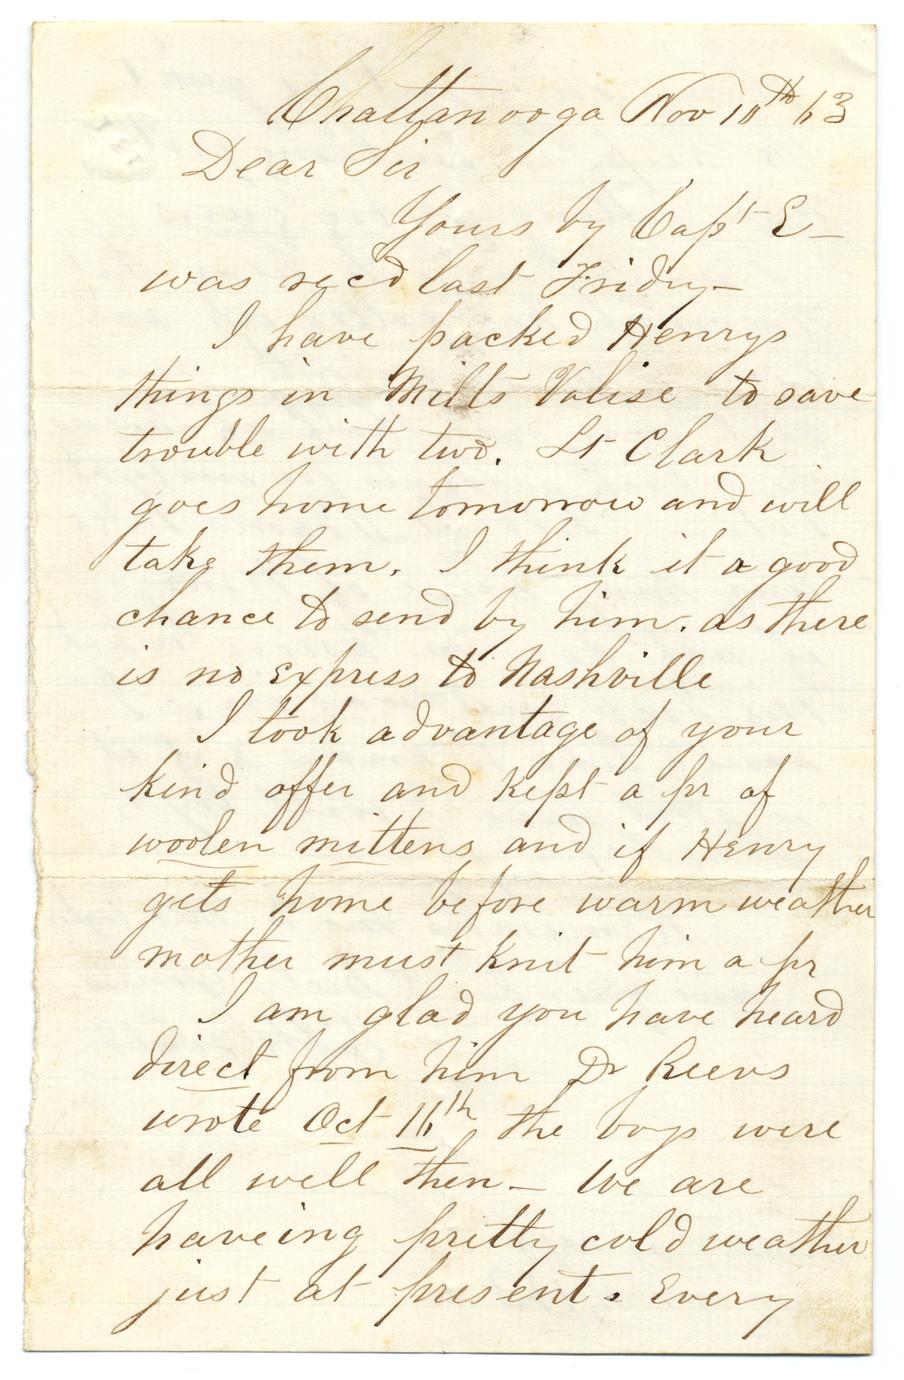 Chattanooga Nov 10th 63
Dear Sir
Yours by Capt E–
was recd last Fridy–
I have packed Henrys
things in Mills Valise to save
trouble with two. Lt Clark
goes home tomorrow and will
take them. I think it a good
chance to send by him. as there
is no express to Nashville
I took advantage of your
kind offer and kept a pr of
woolen mittens and if Henry
gets home before warm weather
mother must knit him a pr
I am glad you have heard
direct from him Dr Reevs
wrote Oct 16th the boys were
all well then– We are
haveing pretty cold weather
just at present. Every